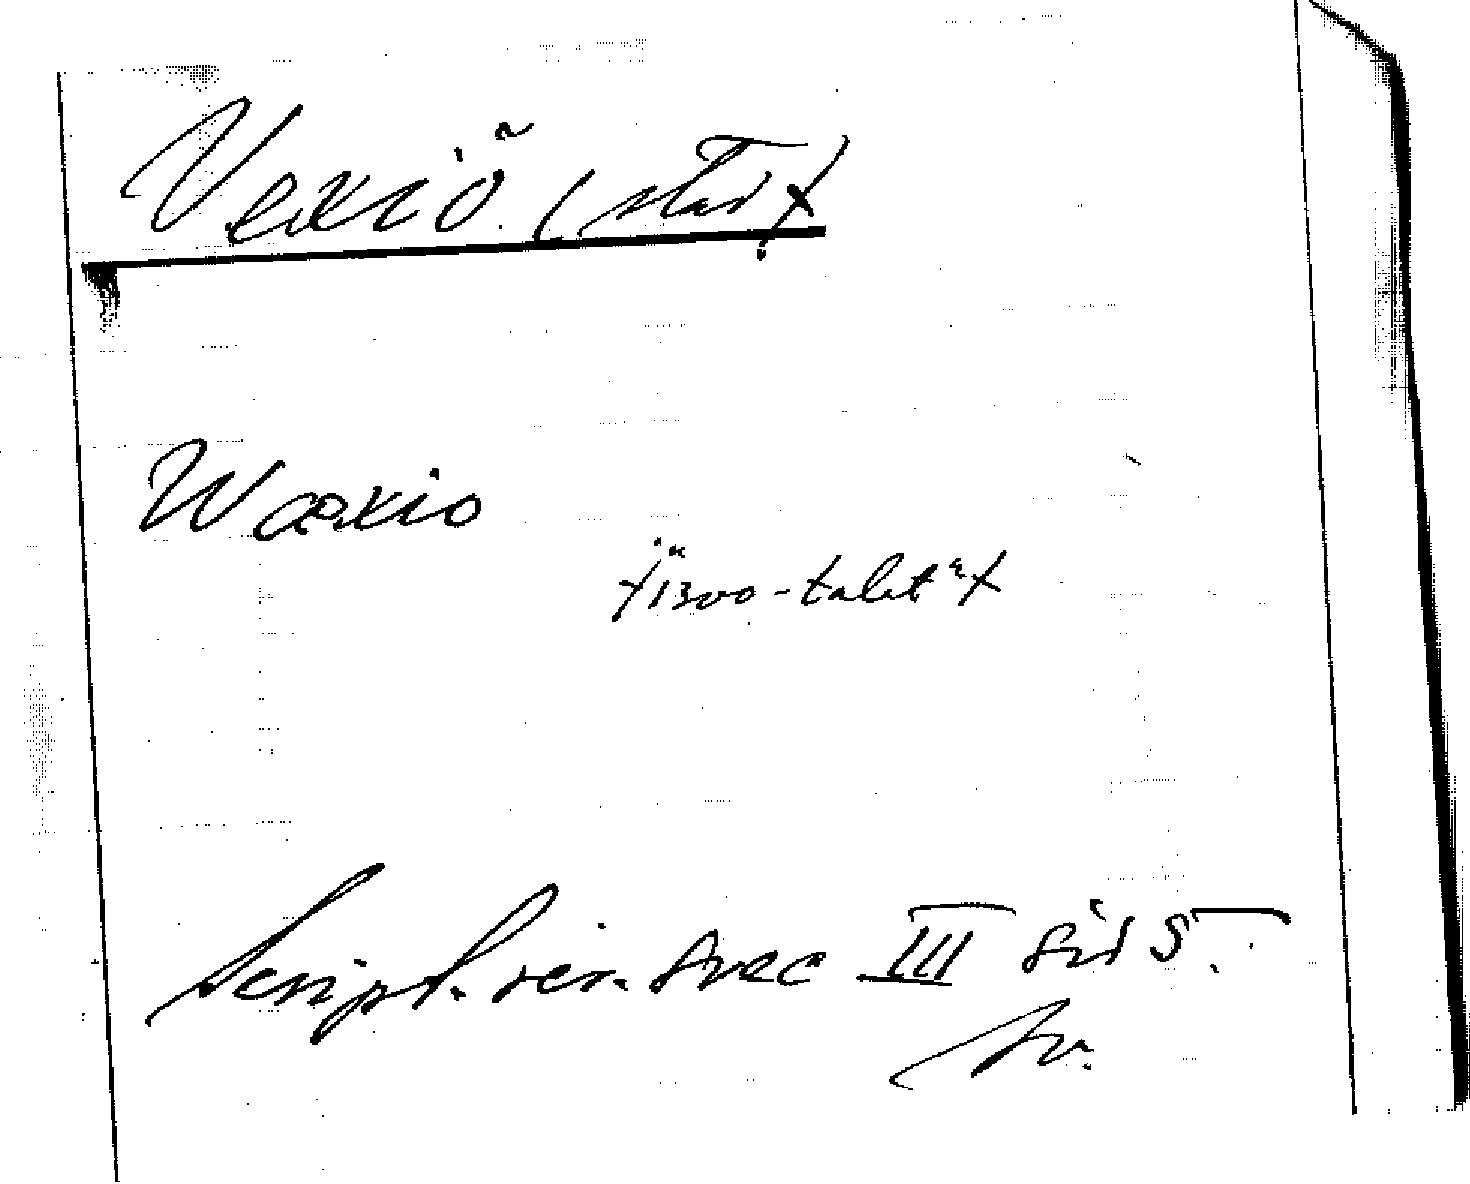 Vexiö (stad)
Waexio
"1300-talet"
Script. rer. svec III sid 5.